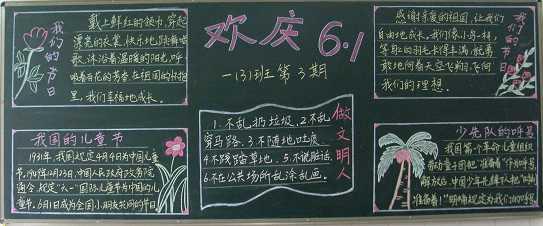 欢庆 6.1
一(3)班 第3期
我们的节日
戴上鲜红的领巾,穿起
漂亮的衣裳,快乐地跳舞唱
歌,沐浴着温暖的阳光,呼
吸着百花的芳香,在祖国的怀抱
里,我们幸福地成长。
感谢亲爱的祖国,让我们
自由地成长。我们像小鸟一样,
等身上的羽毛长丰满,就勇
敢地向着天空飞翔,飞向
我们的理想。
我们的节日
我国的儿童节
1931年,我国规定4月4日为中国儿童
节,1949年12月23日,中国人民政府政务院
通令,规定“六一”国际儿童节为中国的儿
童节,6月1日成为全国小朋友共同的节日
做文明人
1.不乱扔垃圾.2.不乱
穿马路.3.不随地吐痰.
4.不践踏草地. 5.不说脏话.
6.不在公共场所乱涂乱画.
少先队的呼号
我国第一个革命儿童组织
劳动童子团把“准备着”作为呼号,
解放后,中国少年儿
准备着!”明确规定为我们的呼号